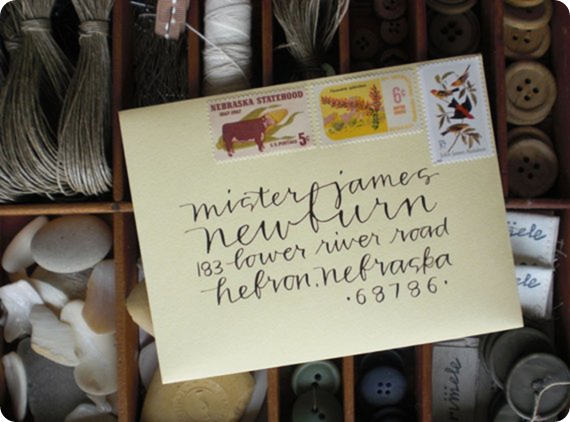 NEBRASKA STATEHOOD
1867-1967
5¢
U.S. POSTAGE
6¢
mister james
newburn
183 lower river road
hebron, nebraska
·68786·